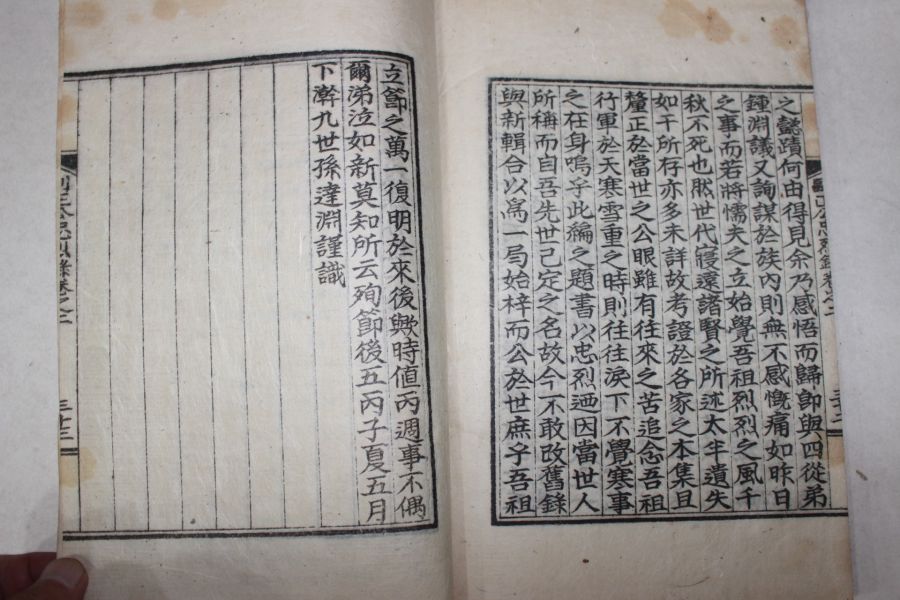 之懿蹟何由得見余乃感悟而歸卽與四從弟
鍾淵議又詢謀於族內則無不感慨痛如昨日
之事而若將懦夫之立始覺吾祖烈烈之風千
秋不死也肰世代寢遠諸賢之所述太半遺失
如干所存亦多未詳故考證於各家之本集且
釐正於當世之公眼雖有往來之苦追念吾祖
行軍於天寒雪重之時則往往淚下不覺寒事
之在身嗚乎此編之題書以忠烈迺因當世人
所稱而自吾先世已定之名故今不敢改舊錄
與新輯合以爲一局始梓而公於世庶乎吾祖
立節之萬一復明於來後歟時値丙週事不偶
爾涕泣如新莫知所云殉節後五丙子夏五月
下澣九世孫達淵謹識
忠烈錄卷之二
三十二
三十三